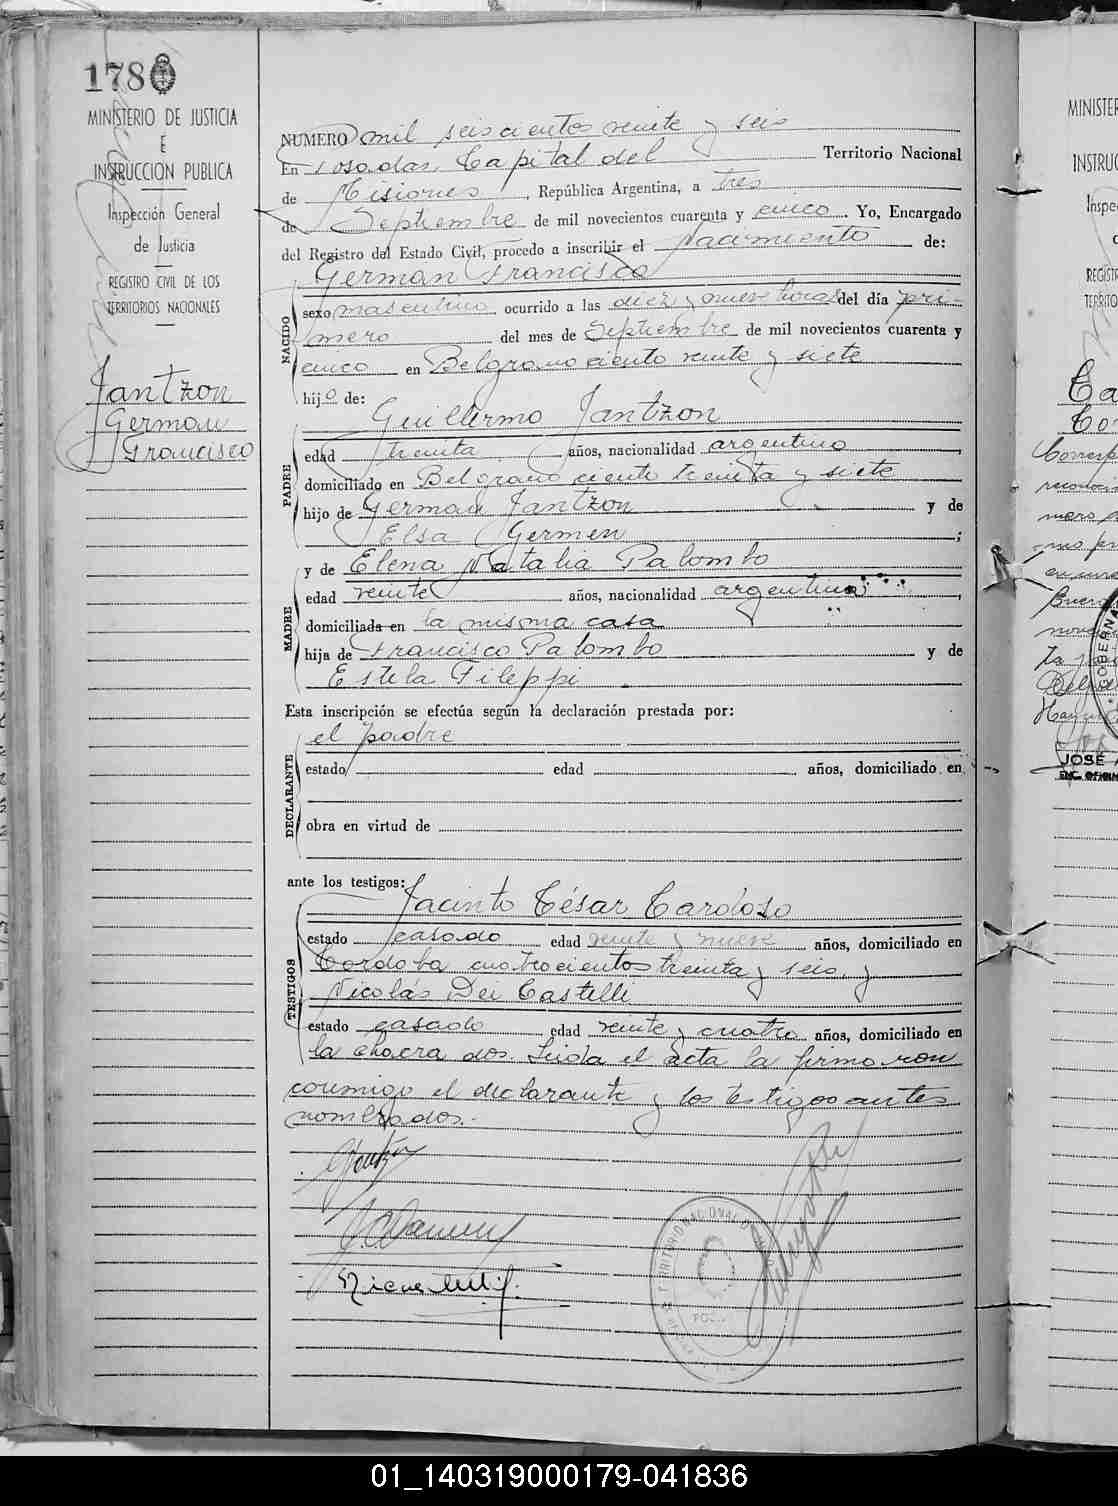 178
MINISTERIO DE JUSTICIA
E
INSTRUCCION PUBLICA
Inspección General
de Justicia
REGISTRO CIVIL DE LOS
TERRITORIOS NACIONALES
Jantzon
German
Francisco
NUMERO mil seiscientos veinte y seis
En Posadas, Capital del Territorio Nacional
de Misiones, República Argentina, a tres
de Septiembre de mil novecientos cuarenta y cinco. Yo, Encargado
del Registro del Estado Civil, procedo a inscribir el Nacimiento de:
German Francisco
NACIDO
sexo masculino ocurrido a las diez y nueve horas del día pri-
mero del mes de Septiembre de mil novecientos cuarenta y
cinco en Belgrano ciento veinte y siete
hijo de:
Guillermo Jantzon
PADRE
edad treinta años, nacionalidad argentino,
domiciliado en Belgrano ciento treinta y siete
hijo de German Jantzon y de
Elsa Germen;
y de Elena Natalia Palombo
MADRE
edad veinte años, nacionalidad argentina,
domiciliada en la misma casa
hija de Francisco Palombo y de
Estela Fileppi
Esta inscripción se efectúa según la declaración prestada por:
el padre
DECLARANTE
estado edad años, domiciliado en
obra en virtud de
ante los testigos:
Jacinto César Cardozo
TESTIGOS
estado casado edad veinte y nueve años, domiciliado en
Cordoba cuatrocientos treinta y seis, y
Nicolás Dei Castelli
estado casado edad veinte y cuatro años, domiciliado en
la chacra dos. Leida el acta la firmaron
conmigo el declarante y los testigos antes
nombrados.-
TERRITORIO NACIONAL DE
MINISTE
INSTRUC
Inspe
REGIST
TERRITO
JOSÉ A
01_140319000179-041836